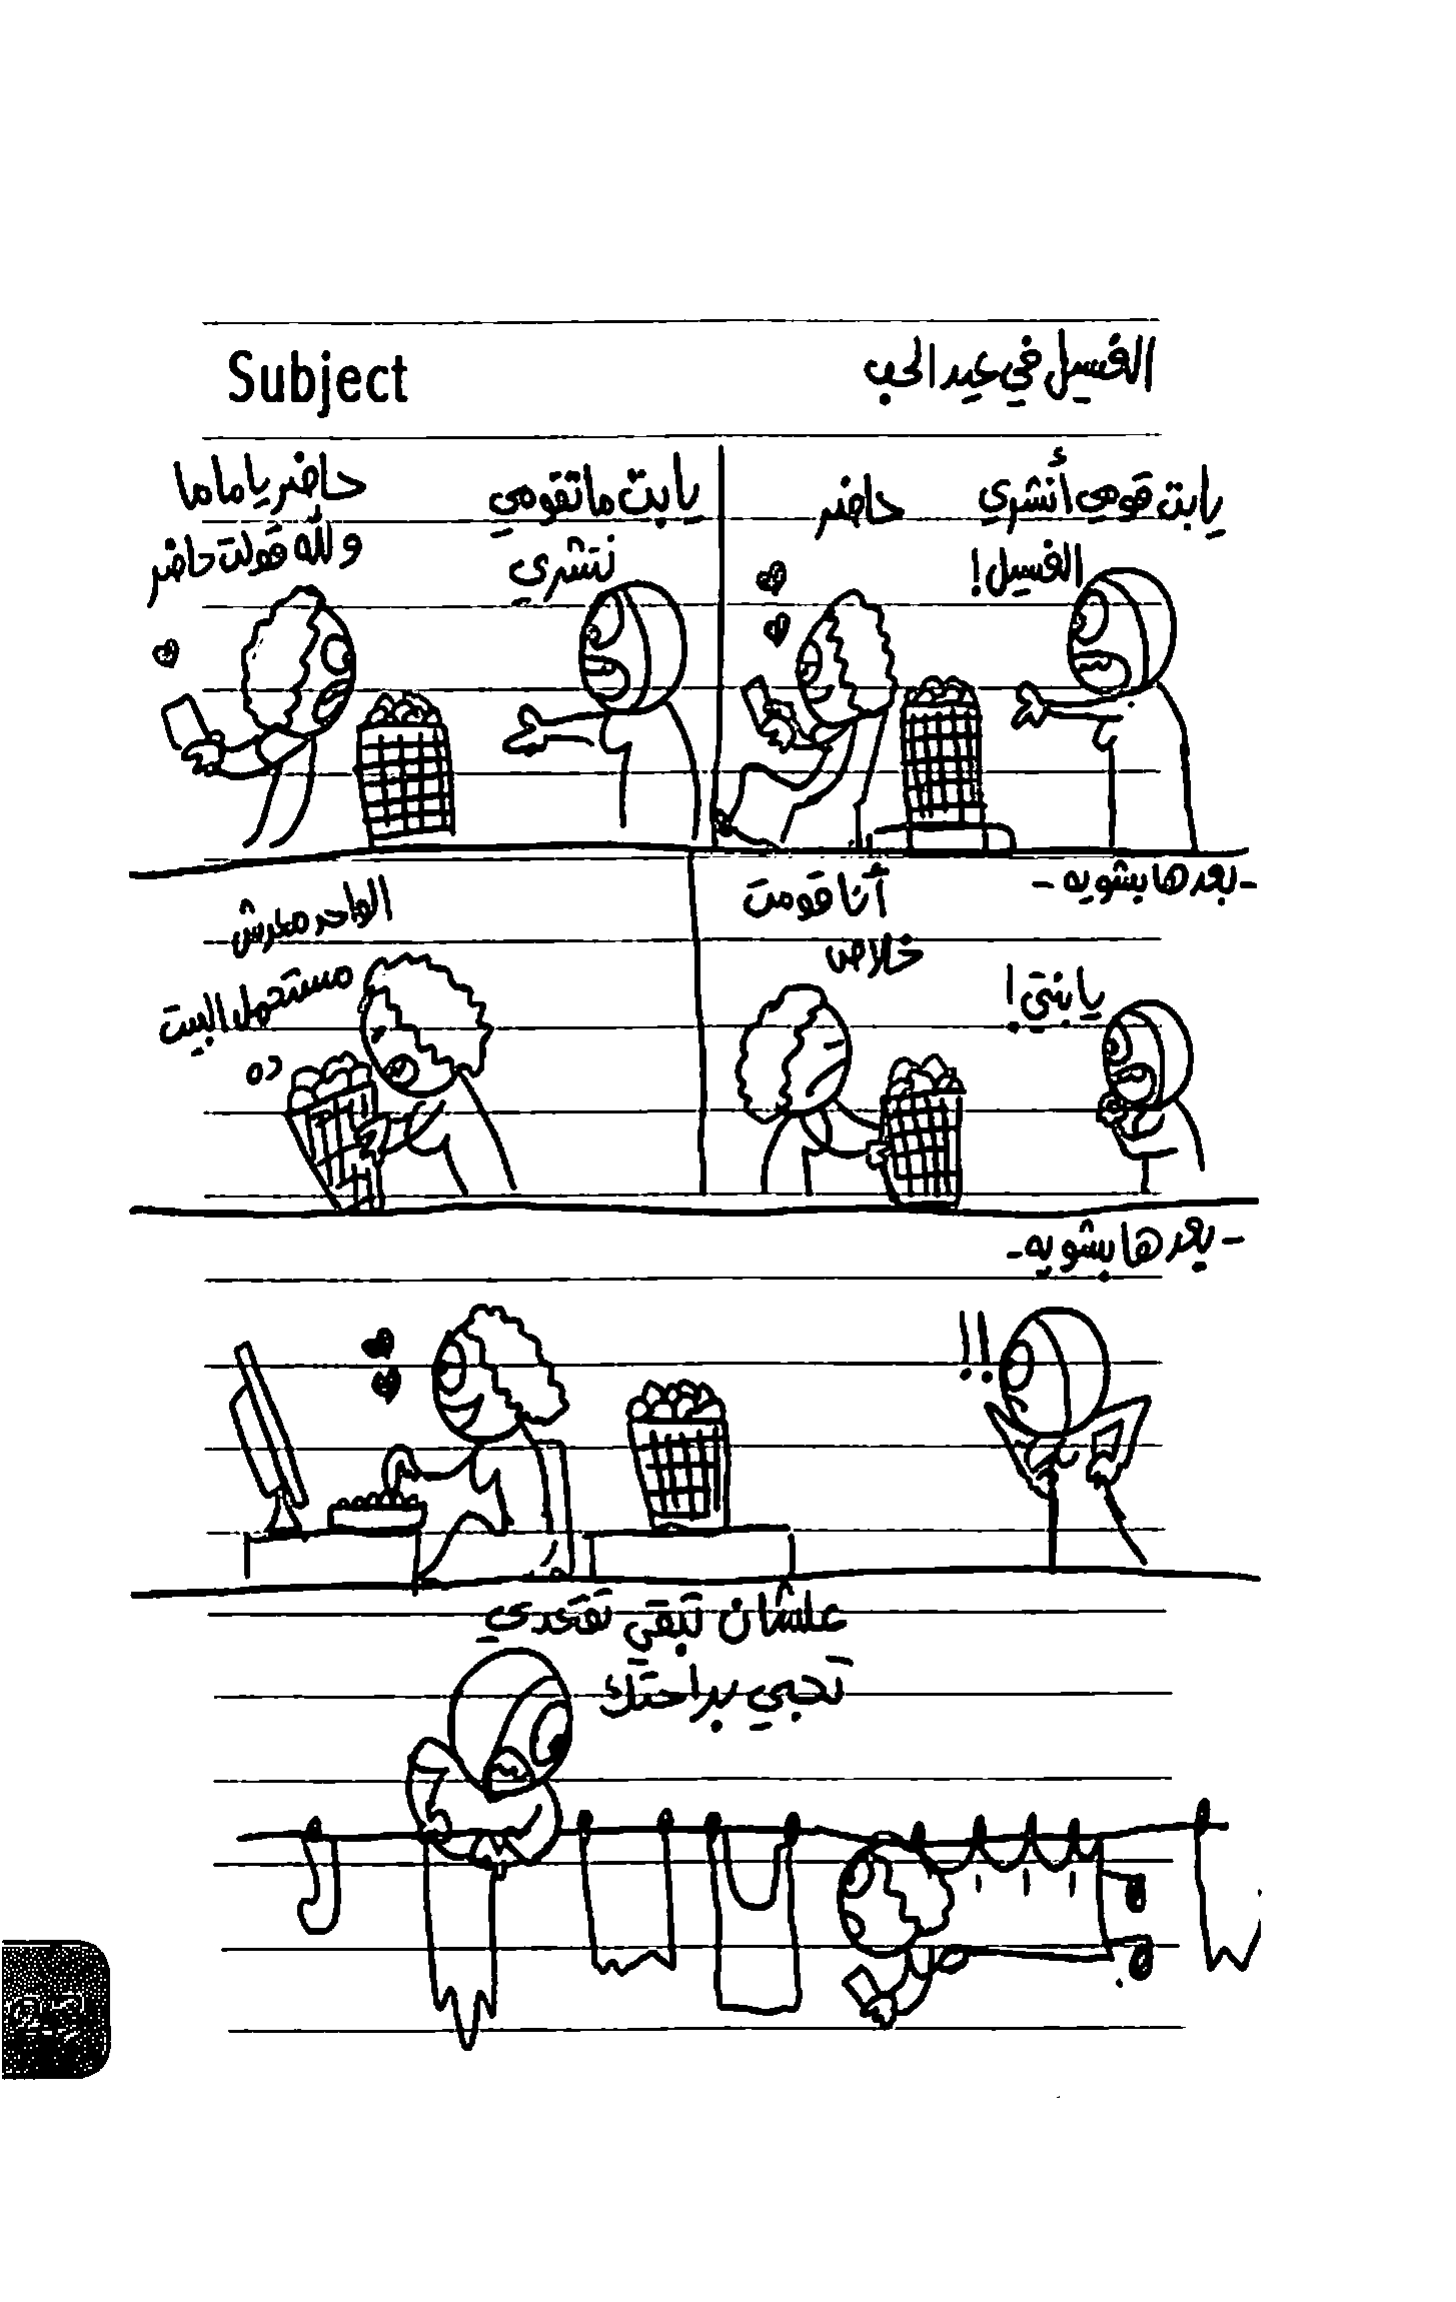 Subject
الغسيل في عيد الحب
يا بت قومي أنشري
الغسيل!
حاضر
يا بت ما تقومي
تنشري
حاضر يا ماما
والله قولت حاضر
- بعدها بشويه -
يا بنتي!
أنا قومت
خلاص
الواحد معدش
مستحمل البيت
ده
- بعدها بشويه -
!!
علشان تبقي تقعدي
تحبي براحتك